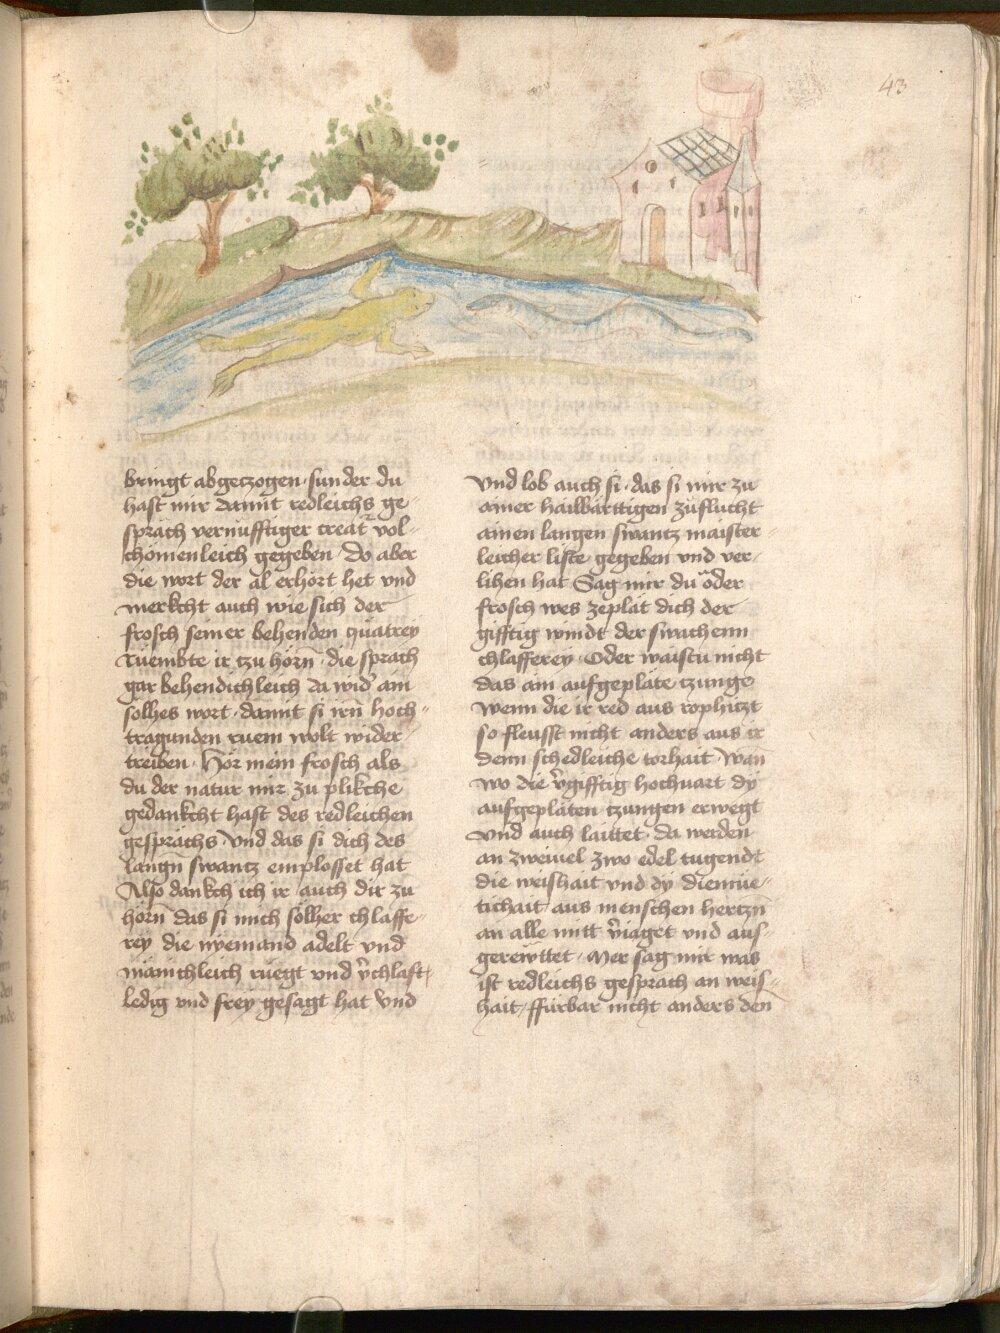 43
bringt abgeczogen · sunder du
hast mir damit redleichs ge-
sprach vernufftiger creat͛ vol-
chömenleich gegeben · Do aber
die wort der al erhört het und
merkcht auch wie sich der
frosch seiner behenden quatrey
rüembte ir tzu hörn̄ · die sprach
gar behendichleich da wid͛ ain
solhes wort · damit si irn̄ hoch-
tragunden ruem wolt wider-
treiben · Hör mein frosch als
du der natur mir zu plikche
gedankcht hast des redleichen
gesprächs Und das si dich des
langn̄ swantz emplösset hat
Also dankch ich ir auch dir zu
hörn̄ das si mich sölher chlaffe-
rey die nyemand adelt und
mänichleich rüegt und v͛chlaft
ledig und frey gesagt hat Und
Und lob auch si · das si mir zu
ainer hailbärttigen züflucht
ainen langen swantz maister-
leicher liste gegeben und ver-
lihen hat Sag mir du öder
frosch wes zeplät dich der
gifftig windt der swachenn
chlafferey · Oder waistu nicht
das ain aufgepläte tzunge
wenn die ir red aus rophitzt
so fleusst nicht anders aus ir
denn schedleiche torhait · Wan
wo die v͛gifftig hochuart dy
aufgepläten tzungen erwegt
und auch laittet · da werden
an zweiuel zwo edel tugendt
die weishait und dy diemüe-
tichait aus menschen hertzn̄
an alle mitt v͛iaget und aus-
gerewttet · Mer sag mir was
ist redleichs gesprach an weis-
hait · ffürbar nicht anders den